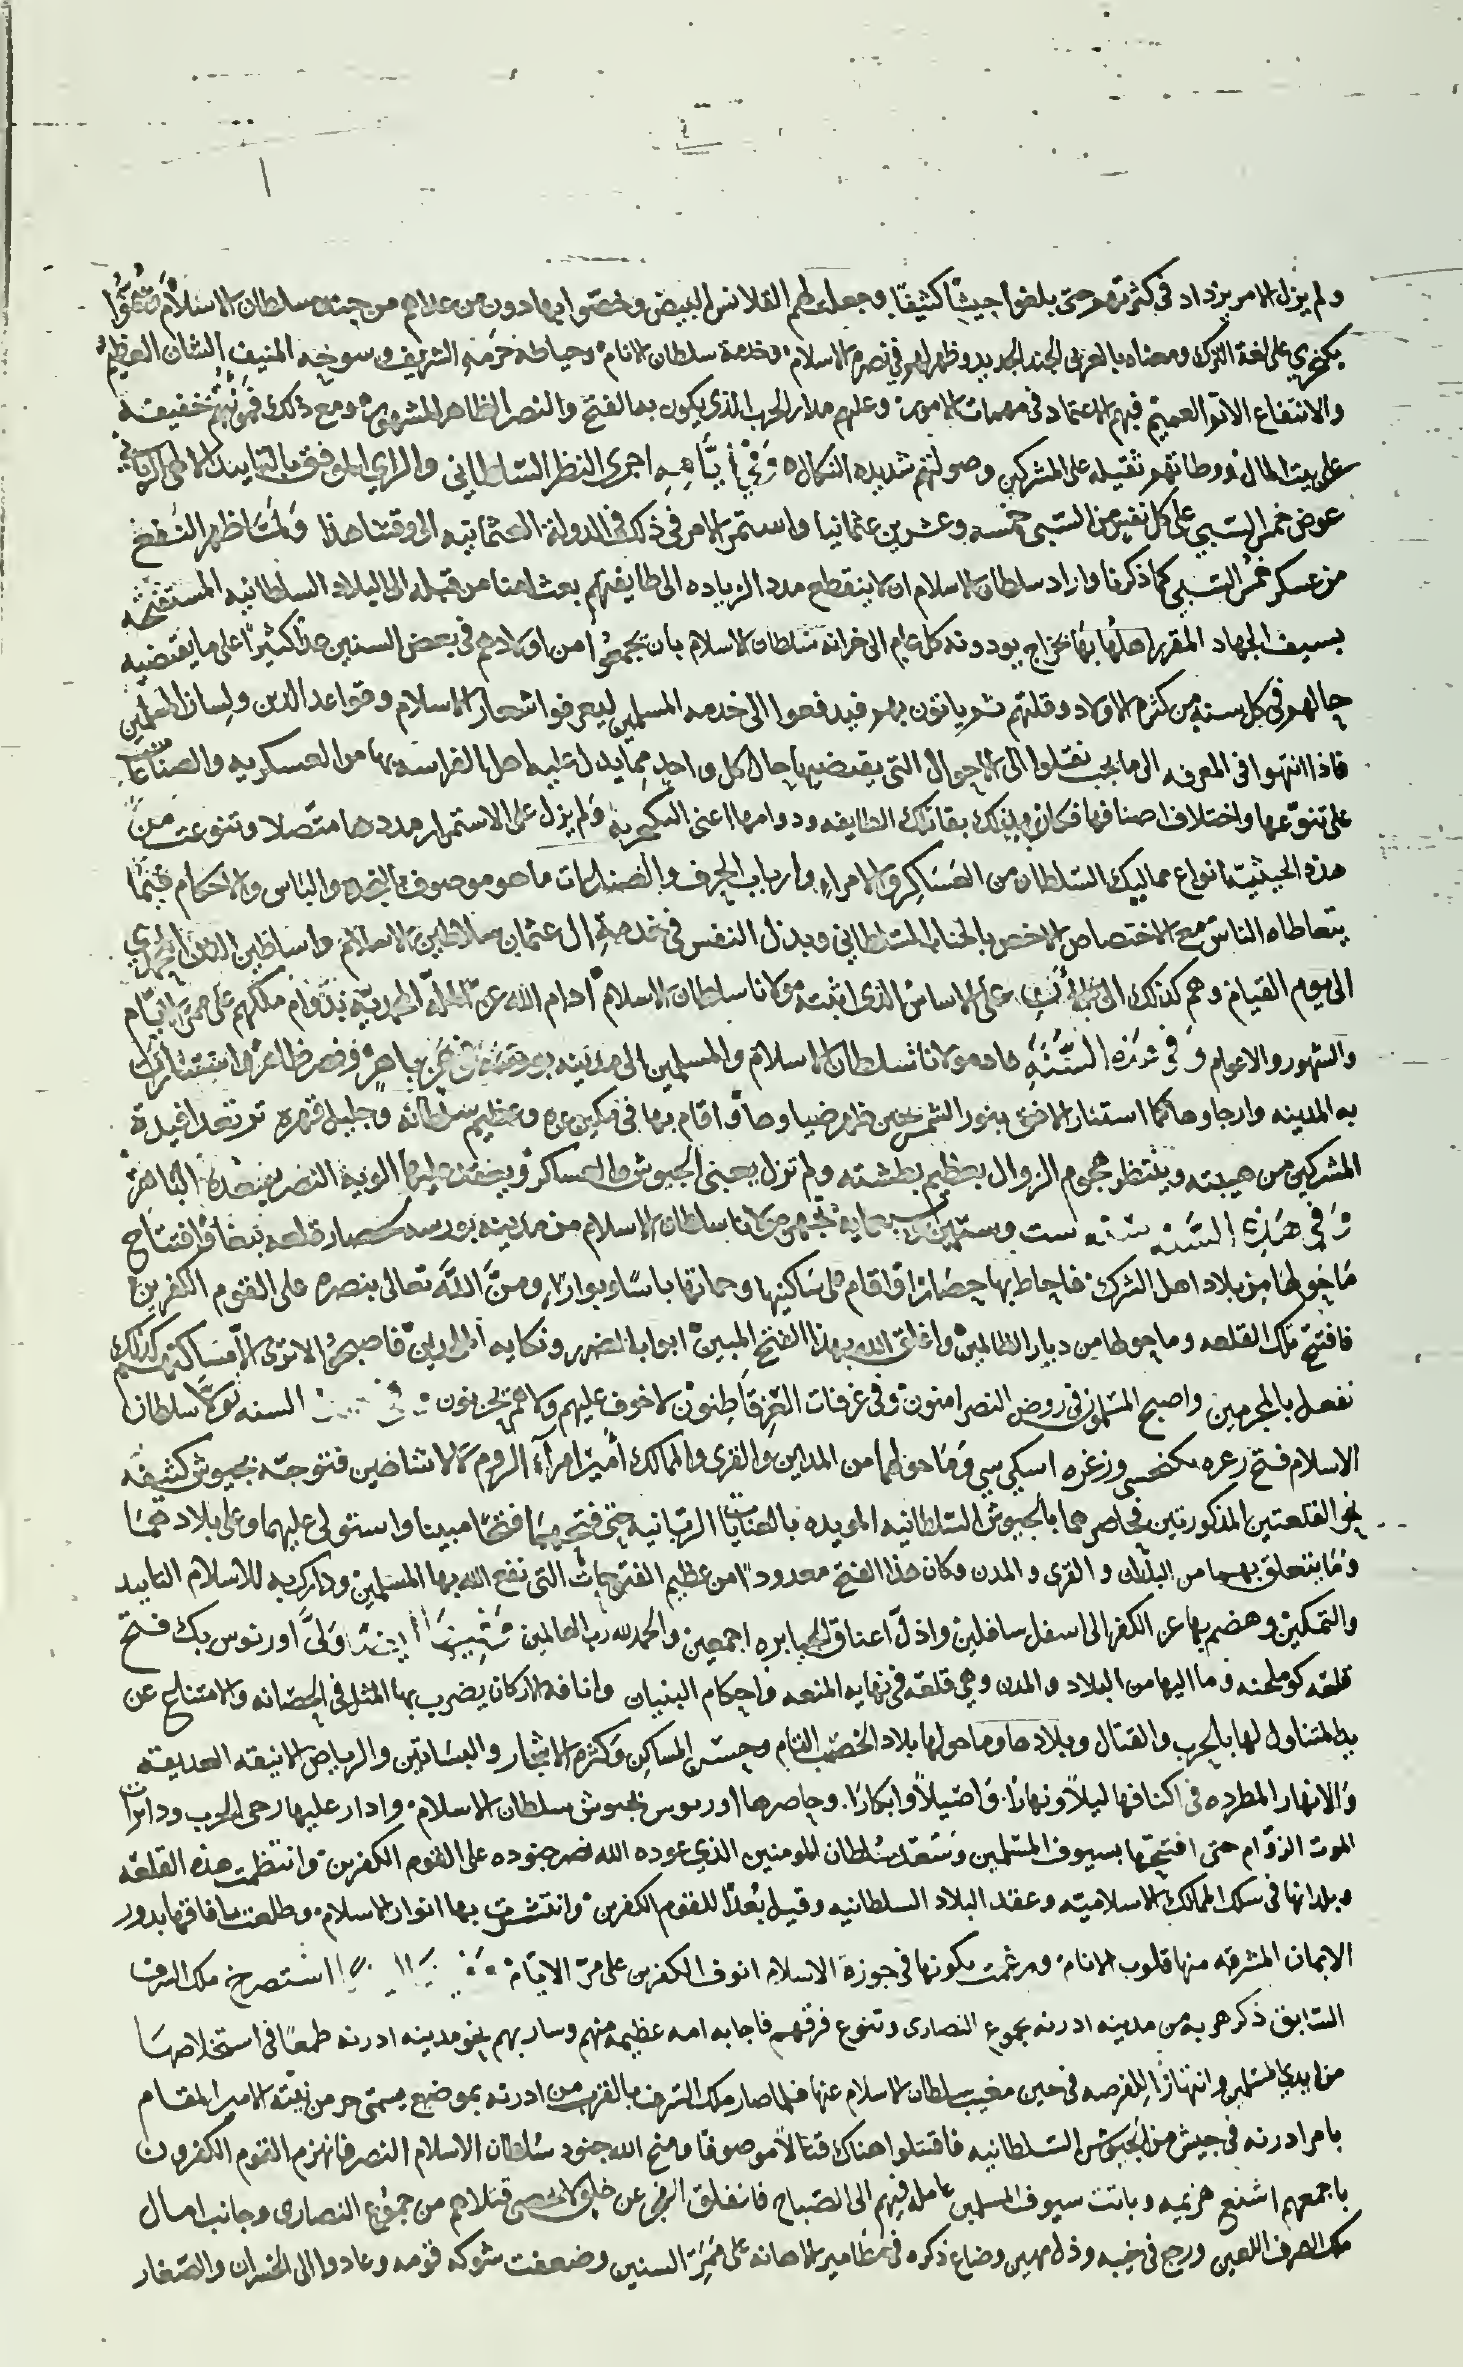 ولم يزل الامر يزداد في كثرتهم حتى بلغوا جيشًا كثيفًا وجعل لهم القلانس البيض وخصّوا بها دون من عداهم من جند سلطان الاسلام وسمّوا
يكجري على لغة الترك ومعناه بالعربي الجند الجديد وظهر لهم في نصرة الاسلام وخدمة سلطان الانام وحياطة حرمه الشريف وسوحه المنيف الشان العظيم
والانتفاع العميم فبهم الاعتماد في مهمات الامور وعليهم مدار الحرب الذي يكون به الفتح والنصر الظاهر المشهور ومع ذلك فمؤنتهم خفيفة
على بيت المال ووطاتهم ثقيله على المشركين وصولتهم شديده النكال وفي ايامه اجرى النظر السلطاني والراي الموفق بالتاييد الالهي الرباني
عوض خمس السبي على كل نفير من السبي خمسه وعشرين عثمانيا واستمر الامر في ذلك في الدولة العثمانيه الى وقتنا هذا ولمّا ظهر النفع
من عسكر خمس السبي كما ذكرنا واراد سلطان الاسلام ان لا ينقطع مدد الزياده الى طايفتهم بعث امنا من قبله الى البلاد السلطانيه المستفتحه
بسيف الجهاد المقرر اهلها بها بخراج يودونه كل عام الى خزانه سلطان الاسلام بان يجمعوا من اولادهم في بعض السنين عددًا كثيرًا على ما يقتضيه
حالهم في كل سنه من كثره الاولاد وقلتهم ثم ياتون بهم فيدفعوا الى خدمه المسلمين ليعرفوا شعار الاسلام وقواعد الدين ولسان المسلمين
فاذا انتهوا في المعرفه الى ما يجب نقلوا الى الاحوال التي يقتضيها حال كل واحد مما يدل عليه اهل الفراسه بها من العسكريه والصناعات
على تنوعها واختلاف اصنافها فكان بذلك بقا تلك الطايفه ودوامها اعني اليكجريه ولم يزل على الاستمرار مددها متصلا وتنوعت من
هذه الحيثيّه انواع مماليك السلطان من العساكر والامراء وارباب الحرف والصناعات ما هو موصوف بالنجده والباس والاحكام فيما
يتعاطاه الناس مع الاختصاص الاخص بالجناب السلطاني وبذل النفس في خدمة ال عثمان سلاطين الاسلام واساطين الدين المحمدي
الى يوم القيام وهم كذلك الى الان على الاساس الذي اثبته مولانا سلطان الاسلام ادام الله عز الملّه المحمديه بدوام ملكهم على ممر الايّام
والشهور والاعوام وفي هذه السنه عاد مولانا سلطان الاسلام والمسلمين الى مدينه بورسه في عز باهر ونصر ظاهر فاستنارت
به المدينه وارجاوها كما استنار الافق بنور الشمس حين ظهر ضياوها واقام بها في تمكين عزه وعظيم سلطانه وجليل قهره ترتعد افيدة
المشركين من هيبته وينتظر هجوم الزوال بعظيم بطشته ولم تزل يعبي الجيوش والعساكر ويعقد عليها الوية النصر بيده القاهرة
وفي هذه السنه سنه ست وستين وسبعمايه تجهز مولانا سلطان الاسلام من مدينه بورسه لحصار قلعه بيغا وافتتاح
ما حولها من بلاد اهل الشرك فاحاط بها حصارًا واقام على ساكنيها وحماتها باسًا وبوارًا ومنّ الله تعالى بنصره على القوم الكفرين
فافتتح تلك القلعه وما حولها من ديار الظالمين واغلق الله بهذا الفتح المبين ابواب الضرر ونكايه المعاندين فاصبحوا لا ترى الا مساكنهم كذلك
نفعل بالمجرمين واصبح المسلمون في روض النصر امنون وفي غرفات العز قاطنون لا خوف عليهم ولا هم يحزنون وفي السنه تولا سلطان
الاسلام فتح زعره وزغره اسكي سي وما حولهما من المداين والقرى والممالك امير امرآء الروم لالا شاهين فتوجه بجيوش كثيفه
نحو القلعتين المذكورتين فحاصرهما بالجيوش السلطانيه المويده بالعنايات الربانيه حتى فتحهما فتحًا مبينا واستولى عليهما وعلى بلادهما
وما يتعلق بهما من البلدان والقرى والمدن وكان هذا الفتح معدودًا من عظيم الفتوحات التي نفع الله بها المسلمين ودارك به للاسلام التاييد
والتمكين وهضم بها عز الكفر الى اسفل سافلين واذل اعناق الجبابره اجمعين والحمد لله رب العالمين وفيها ايضًا ولّى اورنوس بك فتح
قلعه كوملجنه وما اليها من البلاد والمدن وهي قلعه في نهايه المنعه واحكام البنيان وانافه الاركان يضرب بها المثل في الحصانه والامتناع عن
يد المتناول لها بالحرب والقتال وبلادها وما حولها بلاد الخصب التام وحسن المساكن وكثره الاشجار والبساتين والرياض الانيقه الحديقه
والانهار المطرده في اكنافها ليلاً ونهارًا واصيلاً وابكارًا وحاصرها اورنوس بجيوش سلطان الاسلام وادار عليها رحى الحرب ودائرات
الموت الزوام حتى افتتحها بسيوف المسلمين وسعد سلطان المومنين الذي عوده الله نصر جنوده على القوم الكفرين وانتظمت هذه القلعه
وبلدانها في سلك الممالك الاسلاميه وعقد البلاد السلطانيه وقيل بُعدًا للقوم الكفرين وانتشرت بها انوار الاسلام وطلعت بافاقها بدور
الايمان المشرقه منها قلوب الانام ورغمت بكونها في حوزة الاسلام انوف الكفرين على مرّ الايّام استصرخ ملك الصرف
السابق ذكر هربه من مدينه ادرنه بجموع النصارى وتنوع فرقهم فاجابه امه عظيمه منهم وسار بهم نحو مدينه ادرنه طمعًا في استخلاصها
من ايدي المسلمين وانتهازًا للفرصه في حين مغيب سلطان الاسلام عنها فلما صار ملك الصرف بالقرب من ادرنه بموضع يسمى حرمن بيّته الامير المقام
بامر ادرنه في جيش من الجيوش السلطانيه فاقتلوا هناك قتالاً موصوفا ومنح الله جنود سلطان الاسلام النصر فانهزم القوم الكفرون
باجمعهم اشنع هزيمه وباتت سيوف المسلمين عامله فيهم الى الصباح فانفلق الفجر عن خلق لا تحصى قتلاهم من جموع النصارى وجانب امال
ملك الصرف اللعين ورجع في خيبه وذل مهين وضاع ذكره في مطامير الاهانه على ممر السنين وضعفت شوكه قومه وعادوا الى الخسران والصغار